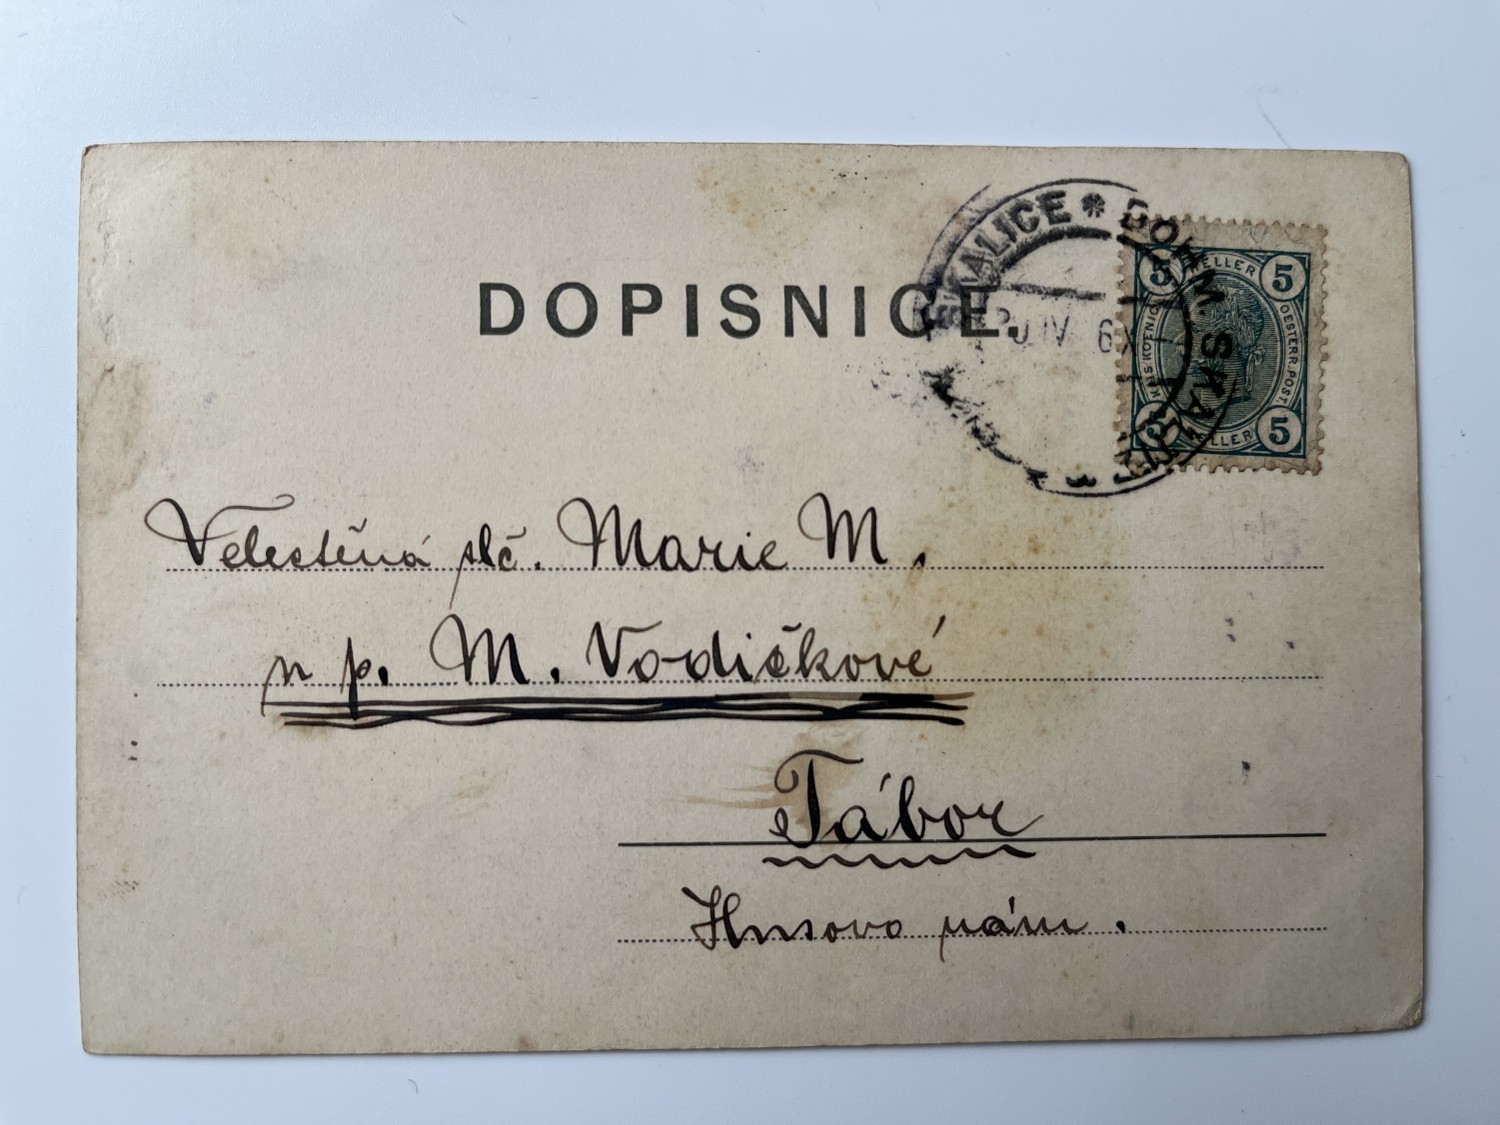 DOPISNICE.
SKALICE * BÖHM. SKALITZ *
IV 6 X
5 HELLER 5
KAIS. KOENIGL. OESTERR. POST.
5 HELLER 5
Velectěná slč. Marie M.
u p. M. Vodičkové
Tábor
Husovo nám.